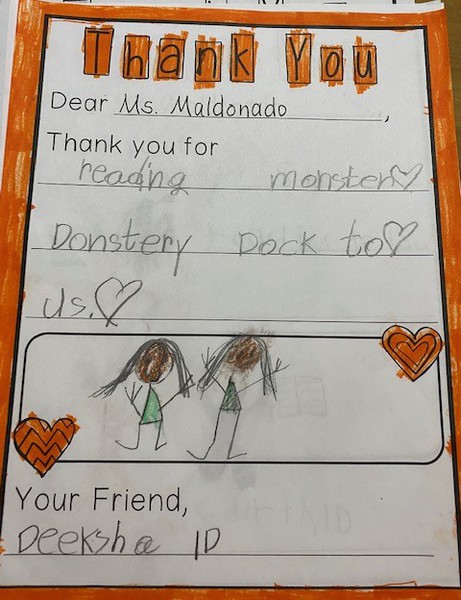 Thank You
Dear Ms. Maldonado,
Thank you for
reading monster♡
Donstery Dock to♡
us.♡
Your Friend,
Deeksha ID